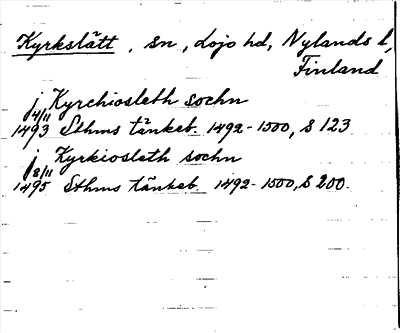 Kyrkslätt, sn, Lojo hd, Nylands l,
Finland
j Kyrchiosleth sochn
4/11
1493 Sthms tänkeb. 1492-1500, S 123
j Kyrkiosleth sochn
8/11
1495 Sthms tänkeb. 1492-1500, S 200.